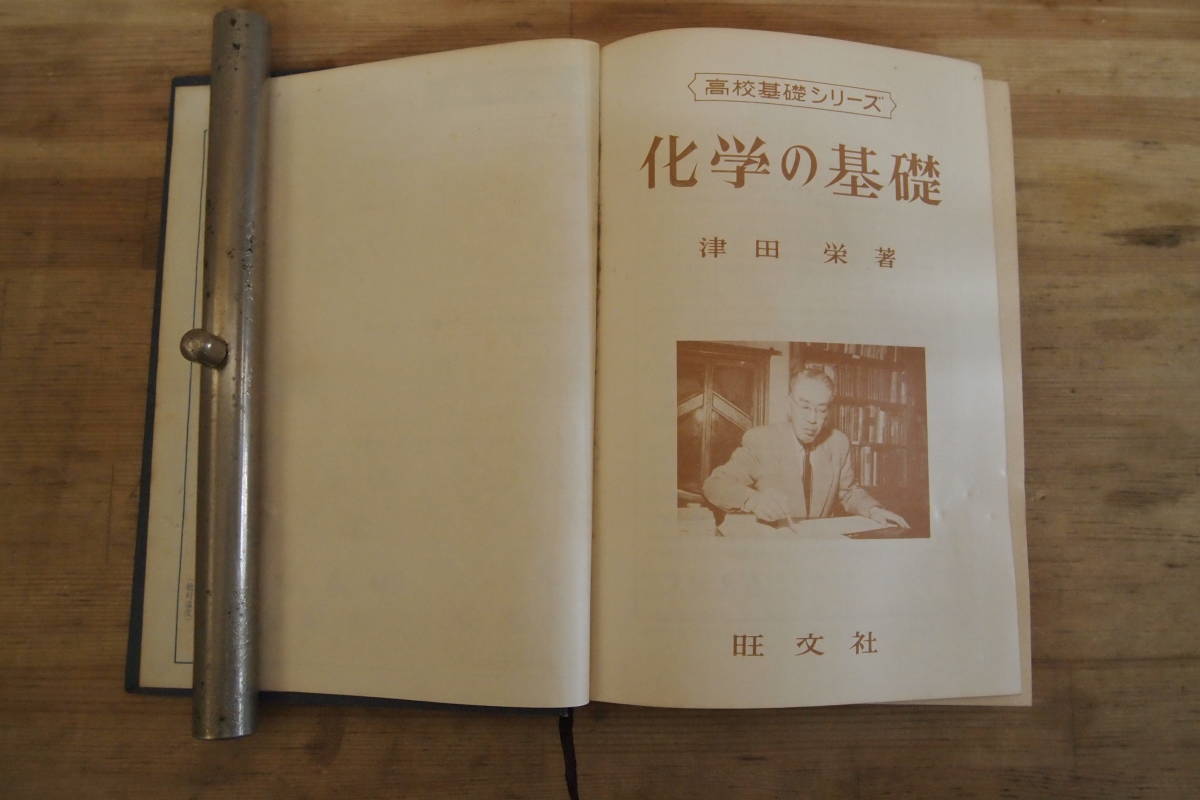 高校基礎シリーズ
化学の基礎
津田 栄 著
旺文社